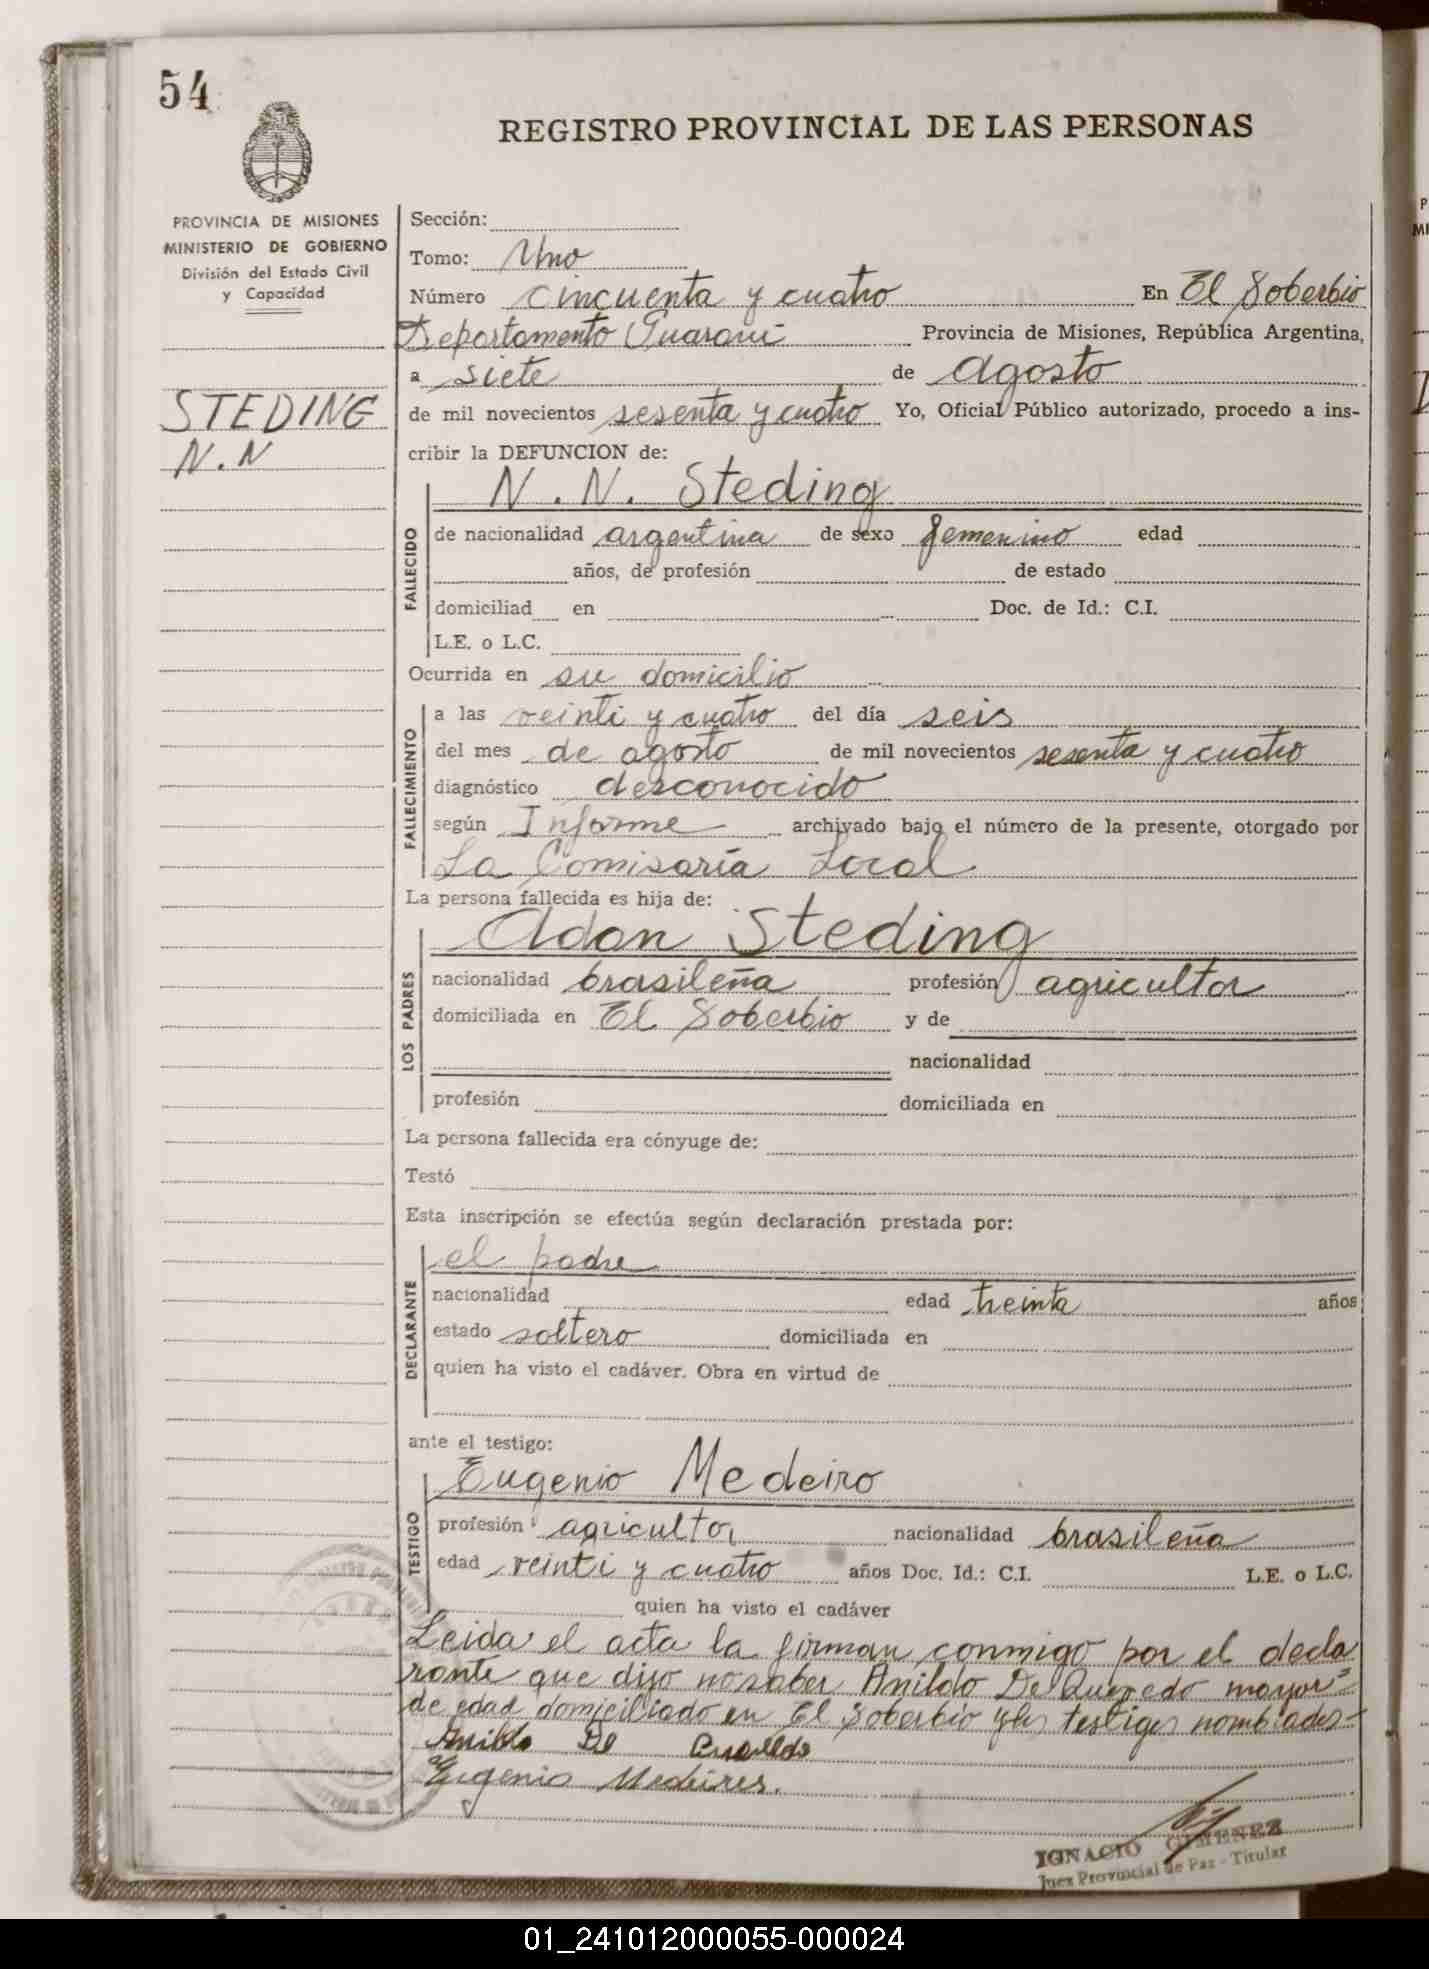 54
REGISTRO PROVINCIAL DE LAS PERSONAS
PROVINCIA DE MISIONES
MINISTERIO DE GOBIERNO
División del Estado Civil
y Capacidad
STEDING
N.N
Sección:
Tomo: Uno
Número cincuenta y cuatro En El Soberbio
Departamento Guaraní Provincia de Misiones, República Argentina,
a siete de agosto
de mil novecientos sesenta y cuatro Yo, Oficial Público autorizado, procedo a ins-
cribir la DEFUNCION de:
N. N. Steding
FALLECIDO
de nacionalidad argentina de sexo femenino edad
años, de profesión de estado
domiciliad en Doc. de Id.: C.I.
L.E. o L.C.
Ocurrida en su domicilio
FALLECIMIENTO
a las veinti y cuatro del día seis
del mes de agosto de mil novecientos sesenta y cuatro
diagnóstico desconocido
según Informe archivado bajo el número de la presente, otorgado por
La Comisaría Local
La persona fallecida es hija de:
LOS PADRES
Adan Steding
nacionalidad brasileña profesión agricultor
domiciliada en El Soberbio y de
nacionalidad
profesión domiciliada en
La persona fallecida era cónyuge de:
Testó
Esta inscripción se efectúa según declaración prestada por:
DECLARANTE
el padre
nacionalidad edad treinta años
estado soltero domiciliada en
quien ha visto el cadáver. Obra en virtud de
ante el testigo:
TESTIGO
Eugenio Medeiro
profesión agricultor nacionalidad brasileña
edad veinti y cuatro años Doc. Id.: C.I. L.E. o L.C.
quien ha visto el cadáver
Leida el acta la firman conmigo por el decla
rante que dijo no saber Anildo De Quevedo mayor
de edad domiciliado en El Soberbio y los testigos nombrados
Anildo De
Eugenio Medeires.
IGNACIO GIMENEZ
Juez Provincial de Paz - Titular
01_241012000055-000024